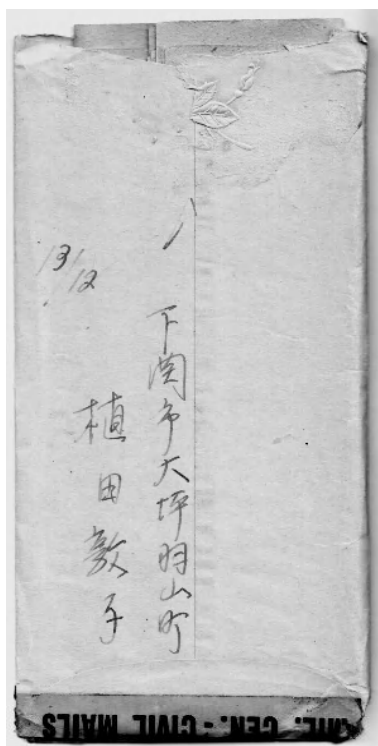 13/12
下関市大坪羽山町
植田敦子
MIL. CEN. - CIVIL MAILS